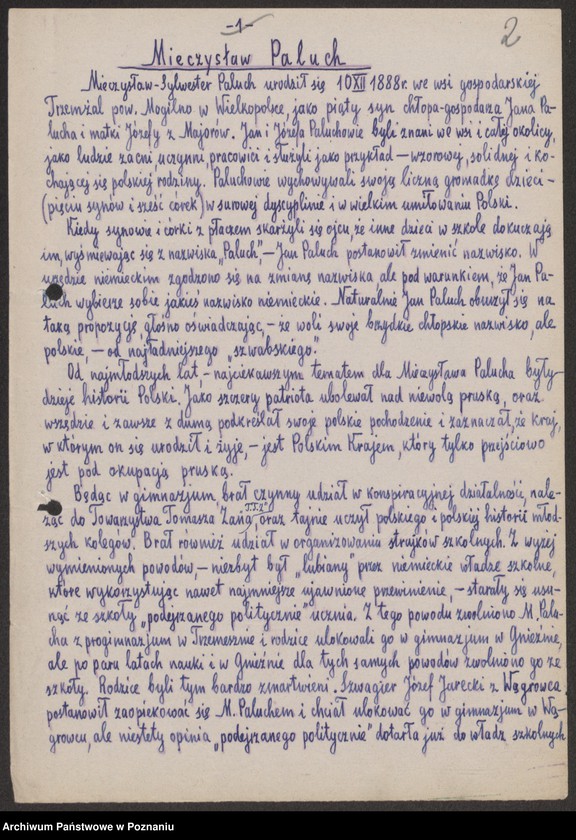 -1-
2
Mieczysław Paluch
Mieczysław-Sylwester Paluch urodził się 10 XII 1888r. we wsi gospodarskiej
Trzemżal pow. Mogilno w Wielkopolsce, jako piąty syn chłopa-gospodarza Jana Pa-
lucha i matki Józefy z Majorów. Jan i Józefa Paluchowie byli znani we wsi i całej okolicy,
jako ludzie zacni, uczynni, pracowici i służyli jako przykład — wzorowej, solidnej i ko-
chającej się polskiej rodziny. Paluchowie wychowywali swoją liczną gromadkę dzieci -
(pięciu synów i sześć córek) w surowej dyscyplinie i w wielkim umiłowaniu Polski.
Kiedy synowie i córki z płaczem skarżyli się ojcu, że inne dzieci w szkole dokuczają
im, wyśmiewając się z nazwiska „Paluch", — Jan Paluch postanowił zmienić nazwisko. W
urzędzie niemieckim zgodzono się na zmianę nazwiska, ale pod warunkiem, że Jan Pa-
luch wybierze sobie jakieś nazwisko niemieckie. Naturalnie Jan Paluch oburzył się na
taką propozycję głośno oświadczając, - że woli swoje brzydkie chłopskie nazwisko, ale
polskie, - od najładniejszego „szwabskiego".
Od najmłodszych lat, - najciekawszym tematem dla Mieczysława Palucha były-
dzieje historii Polski. Jako szczery patriota ubolewał nad niewolą pruską, oraz
wszędzie i zawsze z dumą podkreślał swoje polskie pochodzenie i zaznaczał, że kraj,
w którym on się urodził i żyje, - jest Polskim Krajem, który tylko przejściowo
jest pod okupacją pruską.
Będąc w gimnazjum, brał czynny udział w konspiracyjnej działalności, nale-
żąc do Towarzystwa Tomasza Zana „T.T.Z", oraz tajnie uczył polskiego i polskiej historii młod-
szych kolegów. Brał również udział w organizowaniu strajków szkolnych. Z wyżej
wymienionych powodów, - niezbyt był „lubiany" przez niemieckie władze szkolne,
które wykorzystując nawet najmniejsze ujawnione przewinienie, - starały się usu-
nąć ze szkoły „podejrzanego politycznie" ucznia. Z tego powodu zwolniono M. Palu-
cha z progimnazjum w Trzemesznie i rodzice ulokowali go w gimnazjum w Gnieźnie,
ale po paru latach nauki i w Gnieźnie dla tych samych powodów zwolniono go ze
szkoły. Rodzice byli tym bardzo zmartwieni. Szwagier Józef Jarecki z Wągrowca
postanowił zaopiekować się M. Paluchem i chciał ulokować go w gimnazjum w Wą-
growcu, ale niestety opinia „podejrzanego politycznie" dotarła już do władz szkolnych
Archiwum Państwowe w Poznaniu